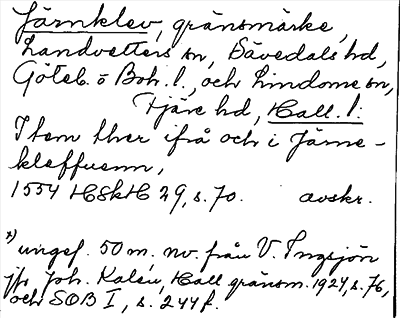 Järnklev, gränsmärke,
Landvetters sn, Sävedals hd,
Göteb. o Boh. l., och Lindome sn,
Fjäre hd, Hall. l:
Item ther ifrå och i Järne-
kleffuenn,
1554 HSkH 29, s. 70. avskr.
x) ungef. 50 m. nv. från V. Ingsjön
jfr Joh. Kalén, Hall gränsm. 1924, s. 76,
och SOB I, s. 244 f.